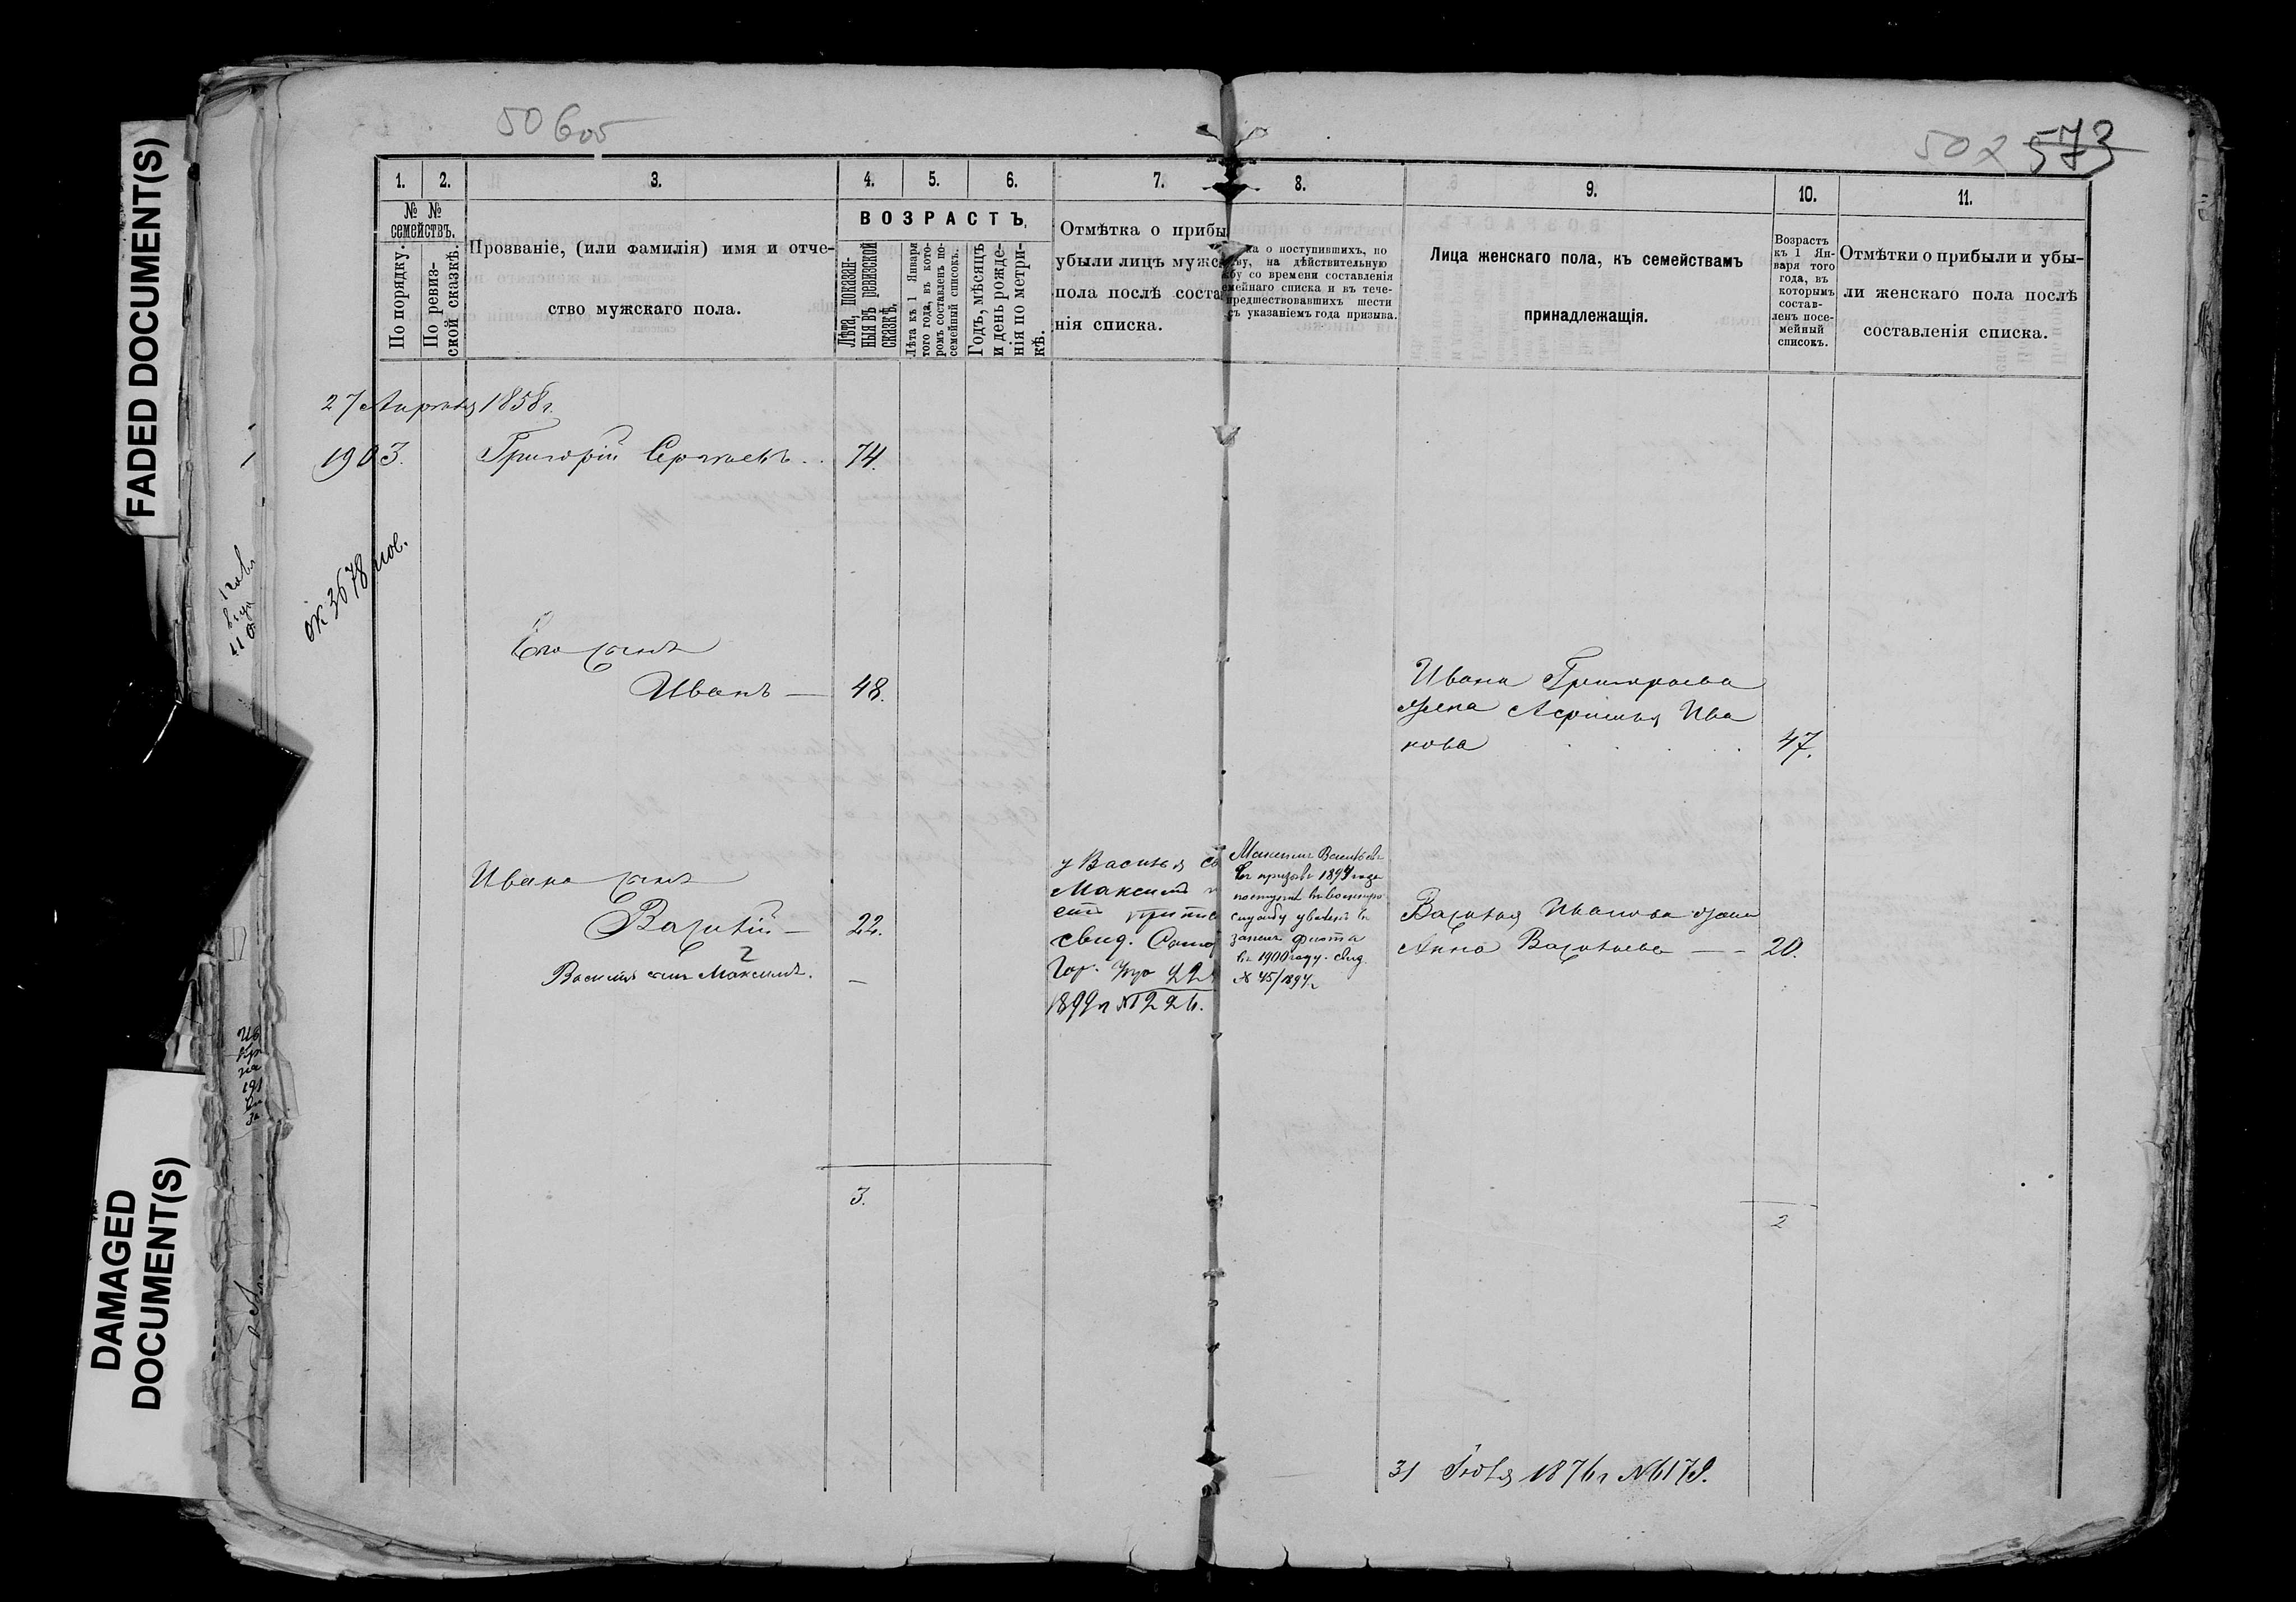 FADED DOCUMENT(S)
DAMAGED
DOCUMENT(S)
50 боб
507 573
1. 2. 3. 4. 5. 6. 7. 8. 9. 10. 11.
№ №
семействъ.
По порядку.
По ревиз-
ской сказкѣ.
Прозваніе, (или фамилія) имя и отче-
ство мужскаго пола.
ВОЗРАСТЪ,
Лѣта, показан-
ныя въ ревизской
сказкѣ.
Лѣта къ 1 Января
того года, въ кото-
ромъ составленъ по-
семейный списокъ.
Годъ, мѣсяцъ
и день рожде-
нія по метри-
кѣ.
Отмѣтка о прибы
убыли лицъ мужс
пола послѣ соста
нія списка.
ка о поступившихъ, по
ву, на дѣйствительную
бу со времени составленія
емейнаго списка и въ тече-
предшествовавшихъ шести
съ указаніемъ года призыва.
Лица женскаго пола, къ семействамъ
принадлежащія.
Возрастъ
къ 1 Ян-
варя того
года, въ
которымъ
состав-
ленъ посе-
мейный
списокъ.
Отмѣтки о прибыли и убы-
ли женскаго пола послѣ
составленія списка.
27 Апрѣля 1858 г.
1903. Григорій Сергѣевъ 74.
ок 3678
Его сынъ
Иванъ — 48.
Ивана Григорьева
жена Ива
нова 47.
Ивана сынъ
Василій — 22.
2
Василія сынъ Максимъ. —
у Василія с
Максимъ
свид.
22
1899 г №1226.
Максимъ Васильевъ
въ призывъ 1897 года
поступилъ
службу уволенъ въ
запасъ флота
въ 1900 году. свид.
№ 45/1897
Василья Иванова жена
Анна Васильева — 20.
3.
2
31 Іюля 1876 г №6179.